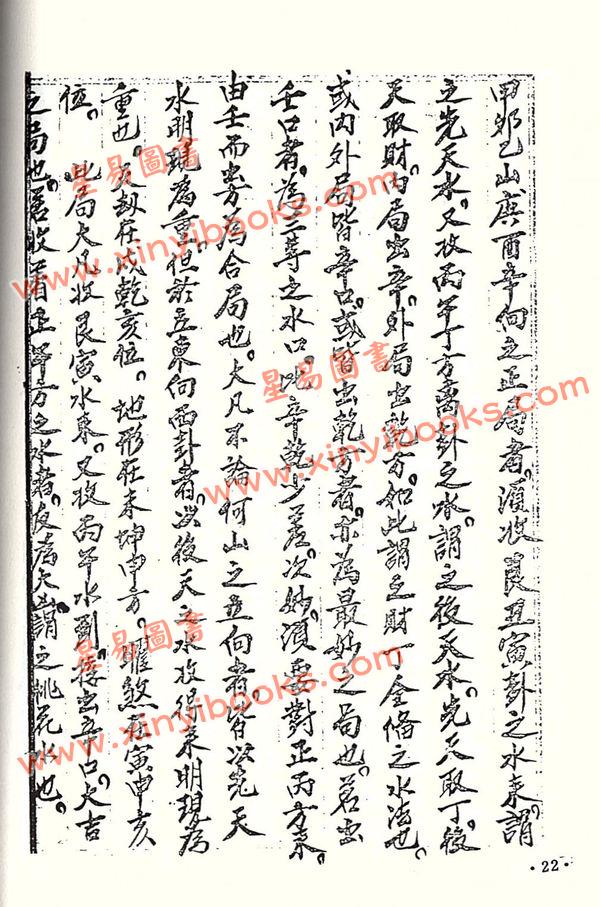 甲卯乙山庚酉辛向之正局者。須收艮丑寅卦之水來。謂
之先天水。又收丙午丁方离卦之水。謂之後天水。先天取丁。後
天取財。內局出辛。外局出乾方。如此謂之財丁全備之水法也。
或內外局皆辛口。或皆出乾方者。亦為最妙之局也。若出
壬口者。為三等之水口。比辛乾少差。次妙。須要對正丙方來。
由壬而出。方為合局也。大凡不論何山之立向者。皆以先天
水明現為重。但於立東向西卦者。以後天之水收得來明現為
重也。劫在戌乾亥位。地形在未坤申方。曜煞在寅申亥
位。 此局大凡收艮寅水來。又收丙午水到。出口。大吉
之局也。若收正午方之水者。反為大凶。謂之桃花水也。
星易圖書
www.xinyibooks.com
星易圖書
www.xinyibooks.com
星易圖書
www.xinyibooks.com
·22·